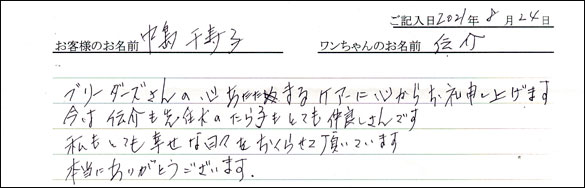 ご記入日2021年 8月24日
お客様のお名前 中島千寿子 ワンちゃんのお名前 伝介
ブリーダーズさんの心あたたまるケアーに心からお礼申し上げます
今は伝介も先住犬のたら子もとても仲良しさんです
私もとても幸せな日々をおくらせて頂いています
本当にありがとうございます.